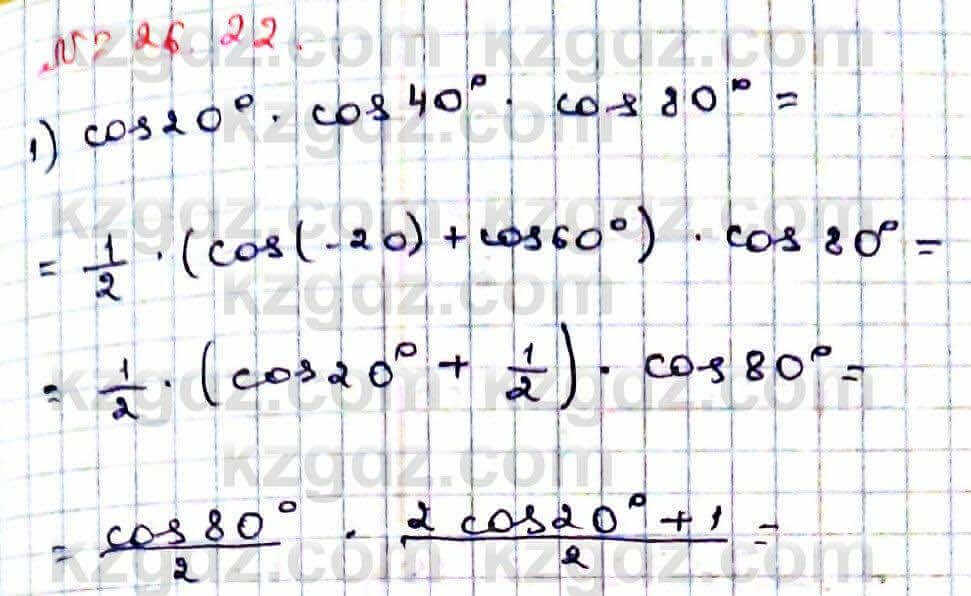 № 26.22.
1) cos20° · cos40° · cos80° =
= 1/2 · (cos(-20) + cos60°) · cos80° =
= 1/2 · (cos20° + 1/2) · cos80° =
= cos80°/2 · 2cos20°+1/2 =
kzgdz.com
kzgdz.com
kzgdz.com
kzgdz.com
kzgdz.com
kzgdz.com
kzgdz.com